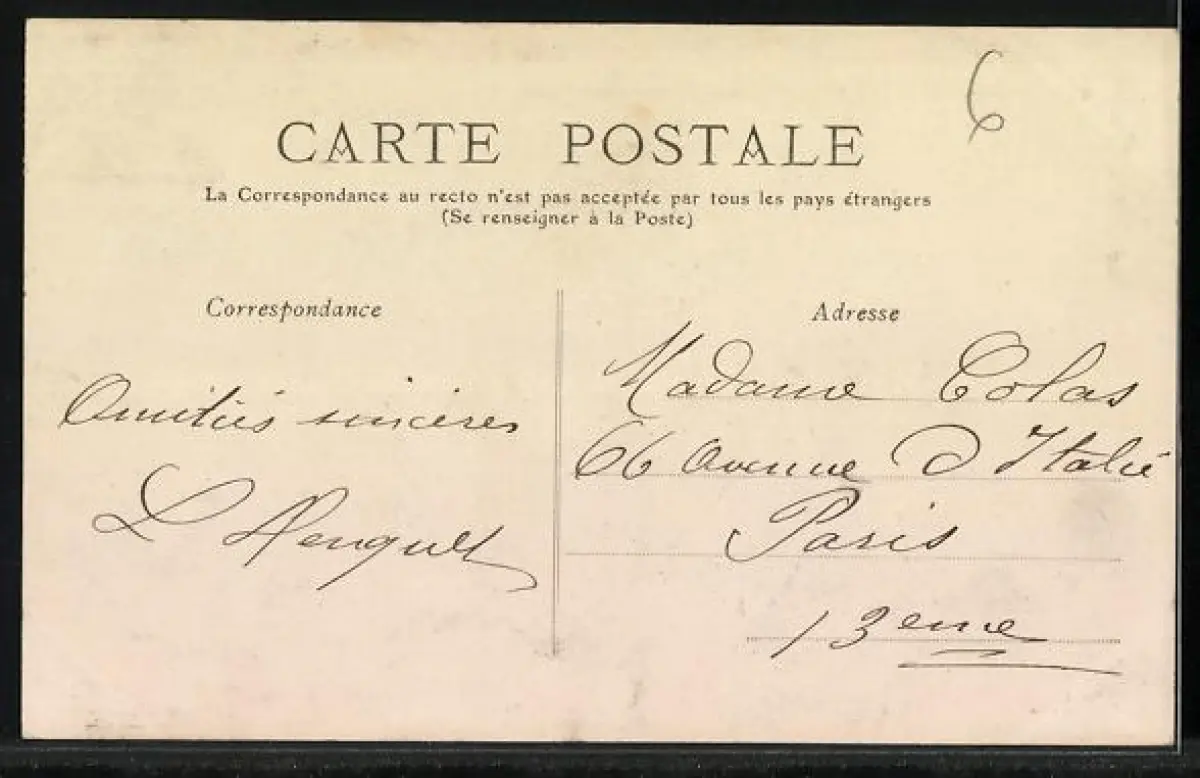 6
CARTE POSTALE
La Correspondance au recto n'est pas acceptée par tous les pays étrangers
(Se renseigner à la Poste)
Correspondance
Adresse
Amitiés sincères
L
Madame Colas
66 Avenue D Italie
Paris
13eme